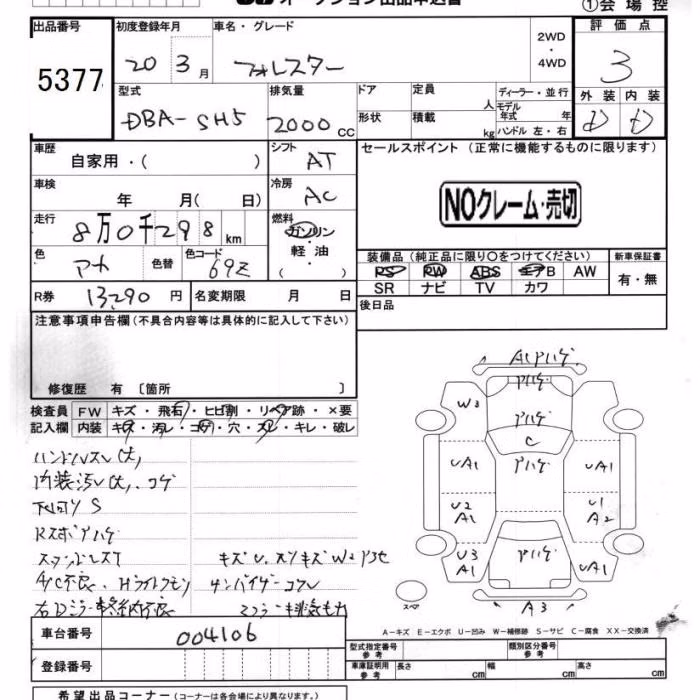 オークション出品申込書 ①会場控
出品番号 初度登録年月 車名・グレード 2WD・4WD 評価点
5377 20 3月 フォレスター 3
型式 排気量 ドア 定員 人 ディーラー・並行 外装 内装
DBA-SH5 2000cc 形状 積載 kg モデル年式 年 D D
ハンドル 左・右
車歴 自家用・( ) シフト AT セールスポイント (正常に機能するものに限ります)
車検 年 月( 日) 冷房 AC NOクレーム・売切
走行 8万0千298km 燃料 ガソリン・軽油( )
色 アカ 色替 色コード 69Z 装備品 (純正品に限り○をつけてください) 新車保証書
PS PW ABS エアB AW 有・無
SR ナビ TV カワ
R券 13,290円 名変期限 月 日 後日品
注意事項申告欄 (不具合内容等は具体的に記入して下さい)
修復歴 有 〔箇所 〕
検査員記入欄 FW キズ・飛石・ヒビ割・リペア跡・×要
内装 キズ・汚レ・コゲ・穴・スレ・キレ・破レ
ハンドルスレ大
内装汚レ大、コゲ
下回りS
Rスポアハゲ
A1アハゲ
アハゲ
W3
アハゲ
C
UA1 アハゲ UA1
U2 A1 U1 A2
U3 A1 アハゲ UA1
スペア A3
A-キズ E-エクボ U-凹み W-補修跡 S-サビ C-腐食 XX-交換済
車台番号 004106
登録番号
型式指定番号参考 類別区分番号参考
車庫証明用参考 長さ cm 幅 cm 高さ cm
希望出品コーナー (コーナーは各会場により異なります。)